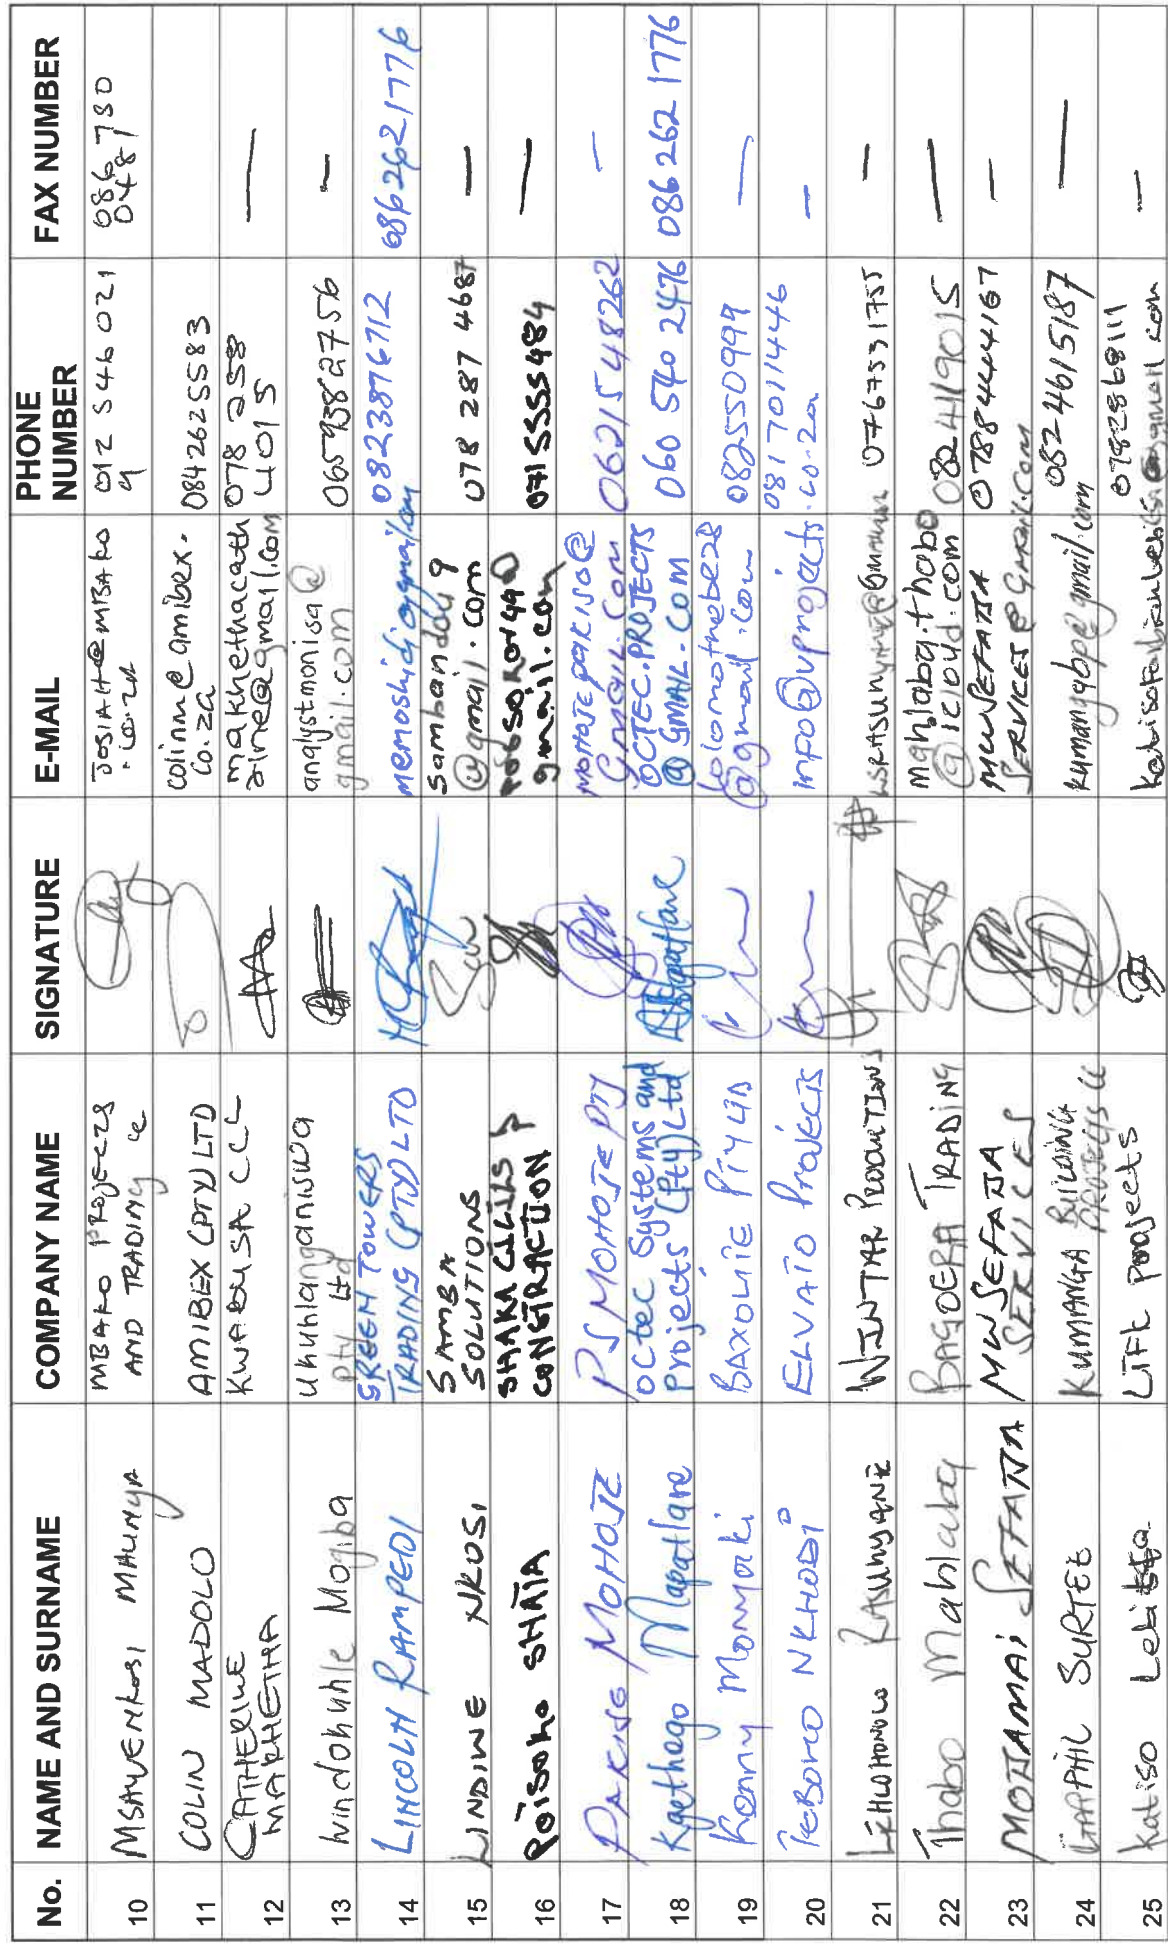 No. NAME AND SURNAME COMPANY NAME SIGNATURE E-MAIL PHONE NUMBER FAX NUMBER
10 MSAWENKOSI MAHNYA MBAKO PROJECTS
AND TRADING cc JOSIAH@MBAKO
.co.za 012 546 021
9 086 730
048
11 COLIN MADOLO AMIBEX (PTY) LTD colinm@amibex.
co.za 0842625583
12 CATHERINE
MAKHETHA KWABUSA CC makhethacath
erine@gmail.com 078 258
4015 —
13 Nindokuhle Mogiba Ukuhlanganiswa
pty Ltd analystmonisa@
gmail.com 0659382756 —
14 LINCOLN RAMPEDI GREEN TOWERS
TRADING (PTY) LTD memoshidi@gmail.com 0823876712 0862621776
15 LINDIWE NKOSI SAMBA
SOLUTIONS Sambaindou9
@gmail.com 078 287 4687 —
16 POISOHO SHAIA SHAKA
CONSTRACTION gmail.com 0715555484 —
17 PAKISO MOHOJE PS MOHOJE PTY MOHOJEPAKISO@
Gmail.Com 0621548262 —
18 Kgothago Mapatlare Octec Systems and
Projects (Pty) Ltd OCTEC.PROJECTS
@GMAIL.COM 060 540 2476 086 262 1776
19 Kenny Monyaki BAXOLIE PTY LTD lolomothebe28
@gmail.com 0825509999 —
20 TEBOHO NKHODI ELVATO PROJECTS INFO@vprojects.co.za 0817011446 —
21 LEHLOHONOLO RASUNYANE WINTAR PRODUCTIONS LSRASUNYANE@GMAIL.COM 0767531755 —
22 Thabo Mahlaba BAGOERA TRADING mahlaba.thabo
@icloud.com 0824119015 —
23 MOTJAMAI SEFATSA MW SEFATSA
SERVICES MWSEFATSA
SERVICES@Gmail.Com 0788444167 —
24 SURTEE KUMANGA BUILDING
PROJECTS CC kumangabp@gmail.com 0824615187 —
25 Katiso Lebitsa LIFT Projects @gmail.com 0782868111 —